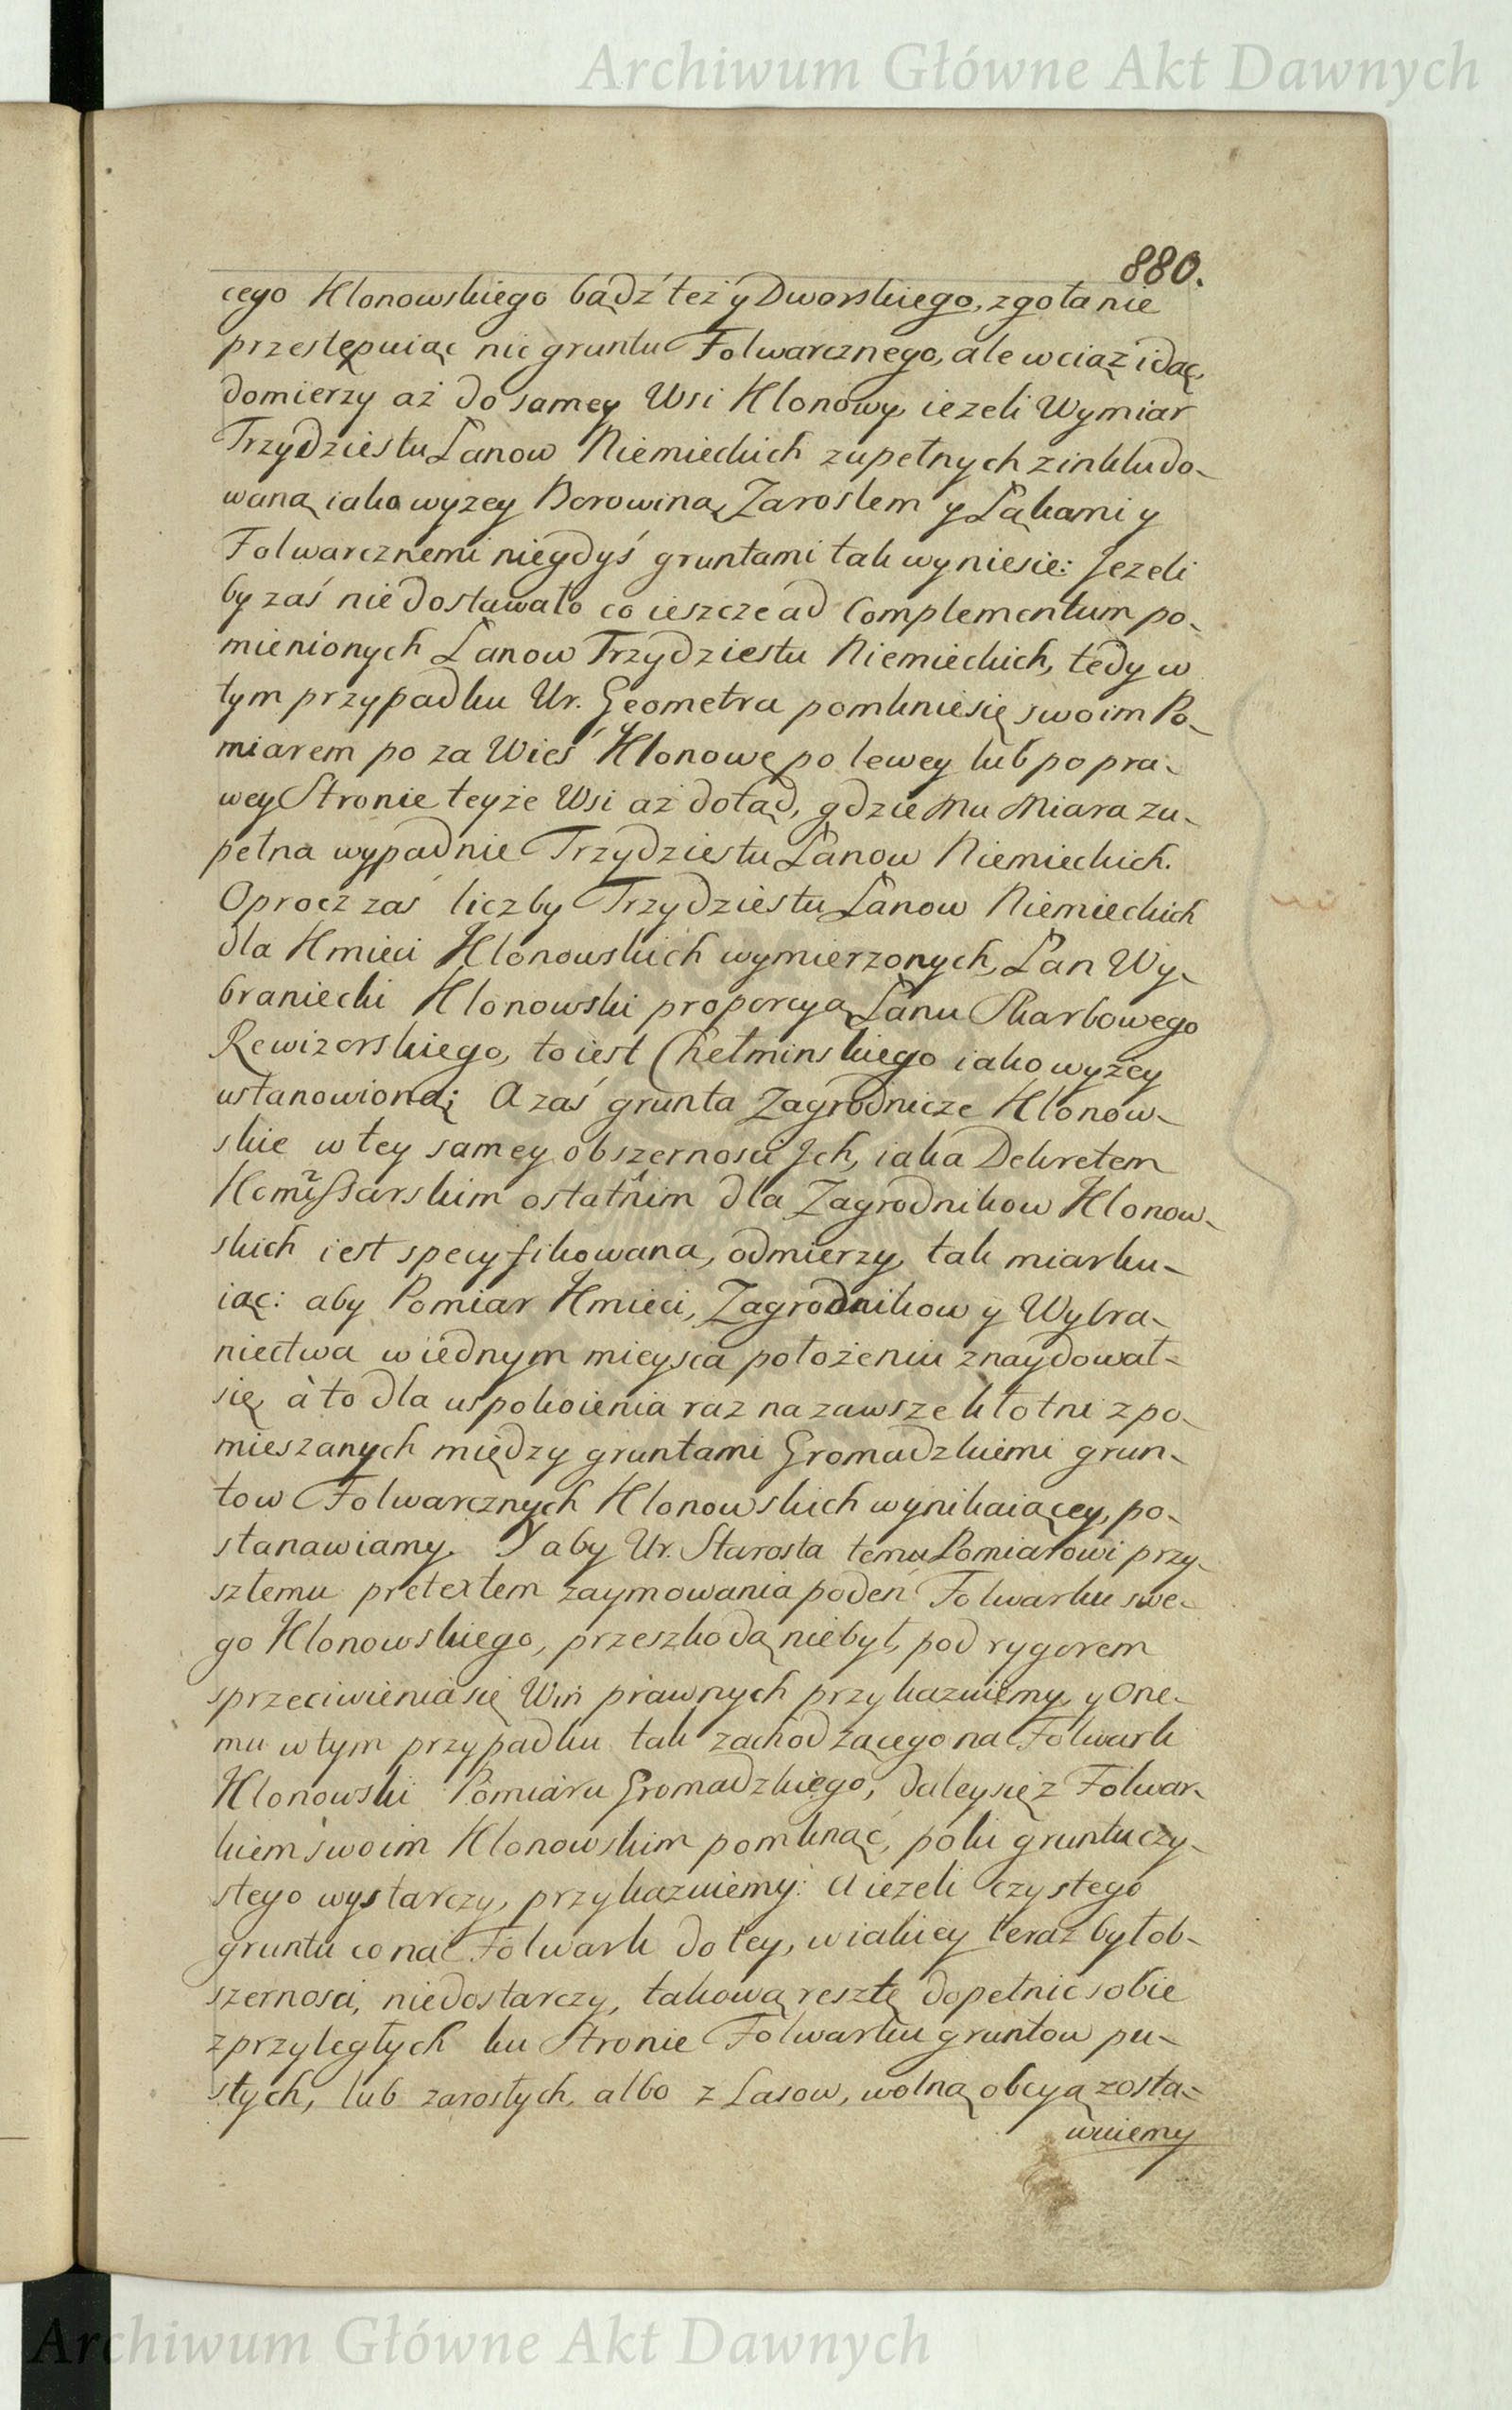 Archiwum Główne Akt Dawnych
880.
cego Klonowskiego bądź też y Dworskiego, zgoła nie
przestępuiąc nic gruntu Folwarcznego, ale wciąż idąc,
domierzy aż do samey Wsi Klonowy, ieżeli Wymiar
Trzydziestu Łanow Niemieckich zupełnych z inkludo-
waną iako wyżey Borowiną, Zaroslem y Łąkami y
Folwarcznemi niegdyś gruntami tak wyniesie: Jeżeli
by zaś niedostawało co ieszcze ad Complementum po-
mienionych Łanow Trzydziestu Niemieckich, tedy w
tym przypadku Ur. Geometra pomknie się swoim Po-
miarem po za Wieś Klonowę po lewey lub po pra-
wey Stronie teyże Wsi aż dotąd, gdzie Mu Miara zu-
pełna wypadnie Trzydziestu Łanow Niemieckich.
Oprocz zaś liczby Trzydziestu Łanow Niemieckich
dla Kmieci Klonowskich wymierzonych, Łan Wy-
braniecki Klonowski proporcyą Łanu Skarbowego
Rewizorskiego, to iest Chełminskiego iako wyżey
ustanowioną; A zaś grunta Zagrodnicze Klonow-
skie w tey samey obszernosci Jch, iaka Dekretem
Komissarskim ostatnim dla Zagrodnikow Klonow-
skich iest specyfikowana, odmierzy, tak miarku-
iąc: aby Pomiar Kmieci, Zagrodnikow y Wybra-
niectwa w iednym mieysca położeniu znaydował-
się, à to dla uspokoienia raz na zawsze kłotni z po-
mieszanych między gruntami Gromadzkiemi grun-
tow Folwarcznych Klonowskich wynikaiącey, po-
stanawiamy. Y aby Ur. Starosta temu Pomiarowi przy-
szłemu pretextem zaymowania podeń Folwarku swe-
go Klonowskiego, przeszkodą niebył, pod rygorem
sprzeciwienia się Win prawnych przykazuiemy, y One-
mu w tym przypadku tak zachodzącego na Folwark
Klonowski Pomiaru Gromadzkiego, daley się z Folwar-
kiem swoim Klonowskim pomknąć, poki gruntu czy-
stego wystarczy, przykazuiemy: A ieżeli czystego
gruntu co na Folwark do tey, w iakiey teraz był ob-
szernosci, niedostarczy, takową resztę dopełnić sobie
z przyległych ku Stronie Folwarku gruntow pu-
stych, lub zarosłych, albo z Lasow, wolną obcyą zosta-
wuiemy
Archiwum Główne Akt Dawnych